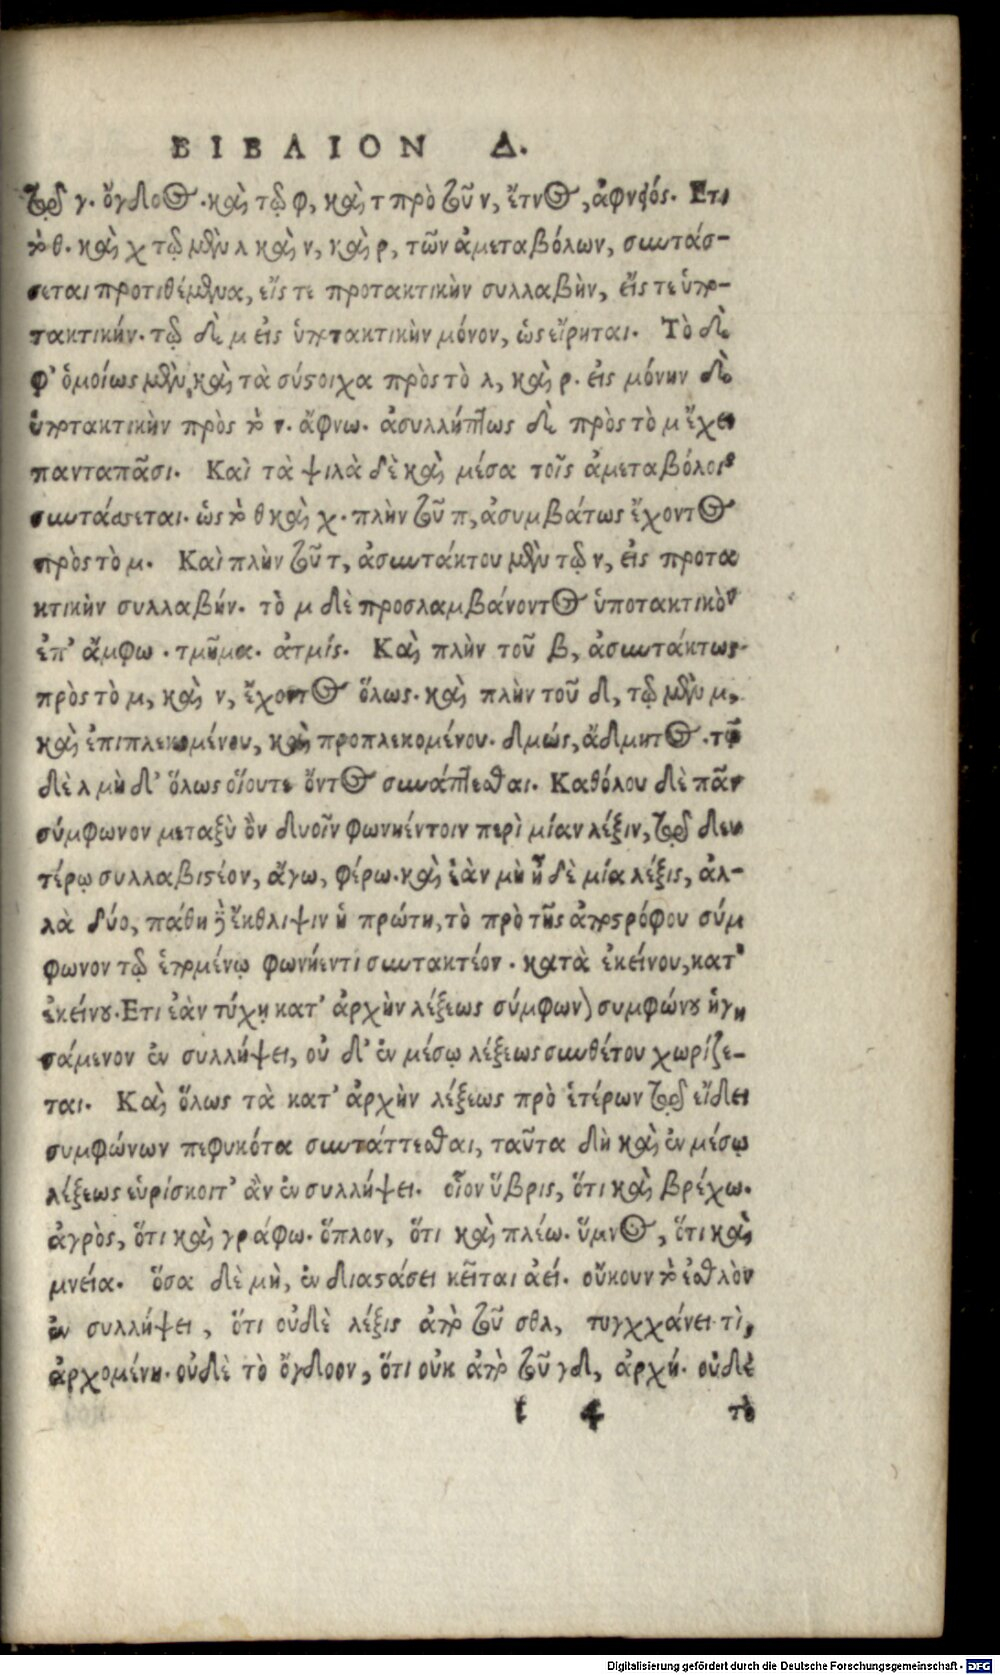 ΒΙΒΛΙΟΝ Δ.
τοῦ γ. ὄγδοος. καὶ τῷ φ, καὶ τ πρὸ τοῦ ν, ἔτνος, ἀφνειός. Ετι
τὸ θ. καὶ χ τῷ μὲν λ καὶ ν, καὶ ρ, τῶν ἀμεταβόλων, συντάσ-
σεται προτιθέμενα, εἴς τε προτακτικὴν συλλαβὴν, εἴς τε ὑπο-
τακτικήν. τῷ δὲ μ εἰς ὑποτακτικὴν μόνον, ὡς εἴρηται. Τὸ δὲ
φ' ὁμοίως μὲν καὶ τὰ σύστοιχα πρὸς τὸ λ, καὶ ρ. εἰς μόνην δὲ
ὑποτακτικὴν πρὸς τὸ ν. ἄφνω. ἀσυλλήπτως δὲ πρὸς τὸ μ ἔχει
πανταπᾶσι. Καὶ τὰ ψιλὰ δὲ καὶ μέσα τοῖς ἀμεταβόλοις
συντάσσεται. ὡς τὸ θ καὶ χ. πλὴν τοῦ π, ἀσυμβάτως ἔχοντος
πρὸς τὸ μ. Καὶ πλὴν τοῦ τ, ἀσυντάκτου μὲν τῷ ν, εἰς προτα
κτικὴν συλλαβήν. τὸ μ δὲ προσλαμβάνοντος ὑποτακτικὸν
ἐπ' ἄμφω. τμῆμα. ἀτμίς. Καὶ πλὴν τοῦ β, ἀσυντάκτως
πρὸς τὸ μ, καὶ ν, ἔχοντος ὅλως. καὶ πλὴν τοῦ δ, τῷ μὲν μ,
καὶ ἐπιπλεκομένου, καὶ προπλεκομένου. δμώς, ἄδμητος. τῷ
δὲ λ μὴ δ' ὅλως οἵουτε ὄντος συνάπτεσθαι. Καθόλου δὲ πᾶν
σύμφωνον μεταξὺ ὂν δυοῖν φωνηέντοιν περὶ μίαν λέξιν, τῷ δευ
τέρῳ συλλαβιστέον, ἄγω, φέρω. καὶ ἐὰν μὴ ᾖ δὲ μία λέξις, ἀλ-
λὰ δύο, πάθη δὲ ἔκθλιψιν ἡ πρώτη, τὸ πρὸ τῆς ἀποστρόφου σύμ
φωνον τῷ ἑπομένῳ φωνήεντι συντακτέον. κατὰ ἐκείνου, κατ'
ἐκείνου. Ετι ἐὰν τύχῃ κατ' ἀρχὴν λέξεως σύμφωνον συμφώνου ἡγη
σάμενον ἐν συλλήψει, οὐ δ' ἐν μέσῳ λέξεως συνθέτου χωρίζε-
ται. Καὶ ὅλως τὰ κατ' ἀρχὴν λέξεως πρὸ ἑτέρων τῷ εἴδει
συμφώνων πεφυκότα συντάττεσθαι, ταῦτα δὴ καὶ ἐν μέσῳ
λέξεως εὑρίσκοιτ' ἂν ἐν συλλήψει. οἷον ὕβρις, ὅτι καὶ βρέχω.
ἀγρὸς, ὅτι καὶ γράφω. ὅπλον, ὅτι καὶ πλέω. ὕμνος, ὅτι καὶ
μνεία. ὅσα δὲ μὴ, ἐν διαστάσει κεῖται ἀεί. οὔκουν τὸ ἐσθλὸν
ἐν συλλήψει, ὅτι οὐδὲ λέξις ἀπὸ τοῦ σθλ, τυγχχάνει τὶ,
ἀρχομένη. οὐδὲ τὸ ὄγδοον, ὅτι οὐκ ἀπὸ τοῦ γδ, ἀρχή. οὐδὲ
t 4 τὸ
Digitalisierung gefördert durch die Deutsche Forschungsgemeinschaft - DFG